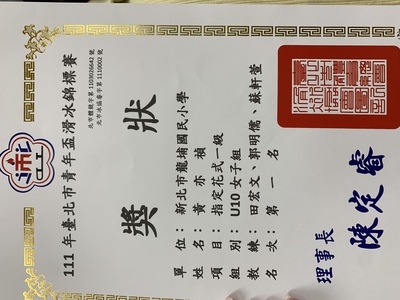 111 年臺北市青年盃滑冰錦標賽
北市體競字第 1103026642 號
北市冰協會字第 1110002 號
獎狀
單位：新北市龍埔國民小學
姓名：黃亦禎
項目：指定花式一級
組別：U10 女子組
教練：田宏文、郭明儒、蘇軒萱
名次：第一名
理事長 陳定睿